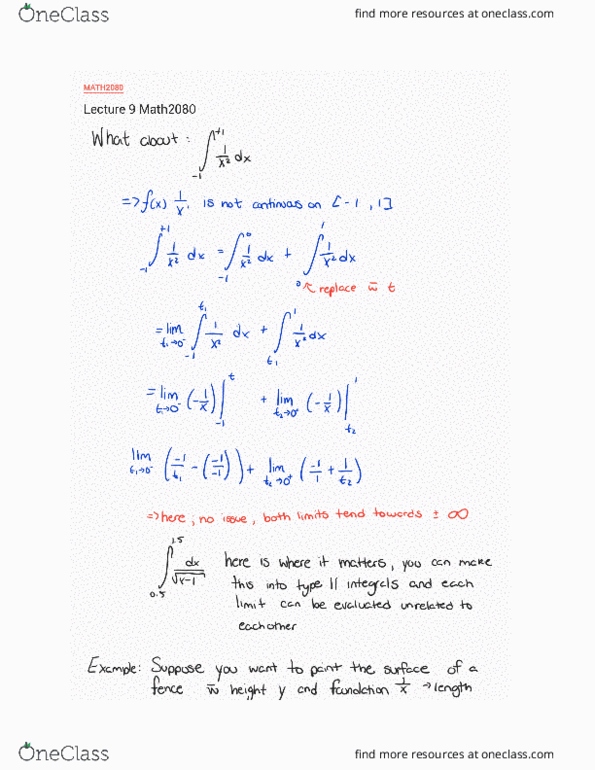 OneClass
find more resources at oneclass.com
MATH2080
Lecture 9 Math2080
What about : ∫₋₁⁺¹ 1/x² dx
=> f(x) 1/x. is not continuas on [-1 , 1]
∫₋₁⁺¹ 1/x² dx = ∫₋₁⁰ 1/x² dx + ∫₀¹ 1/x² dx
replace w̄ t
= lim t₁→0⁻ ∫₋₁^t₁ 1/x² dx + ∫_t₁^1 1/x² dx
= lim t₁→0⁻ (-1/x) |₋₁^t + lim t₂→0⁺ (-1/x) |_t₂^1
lim t₁→0⁻ (-1/t₁ - (-1/-1)) + lim t₂→0⁺ (-1/1 + 1/t₂)
=> here ; no issue , both limits tend towards ± ∞
∫₀.₅^1.5 dx/√x-1 here is where it matters, you can make
this into type II integrals and each
limit can be evaluated unrelated to
eachother
Example: Suppose you want to paint the surface of a
fence w̄ height y and foundation 1/x → length
OneClass
find more resources at oneclass.com